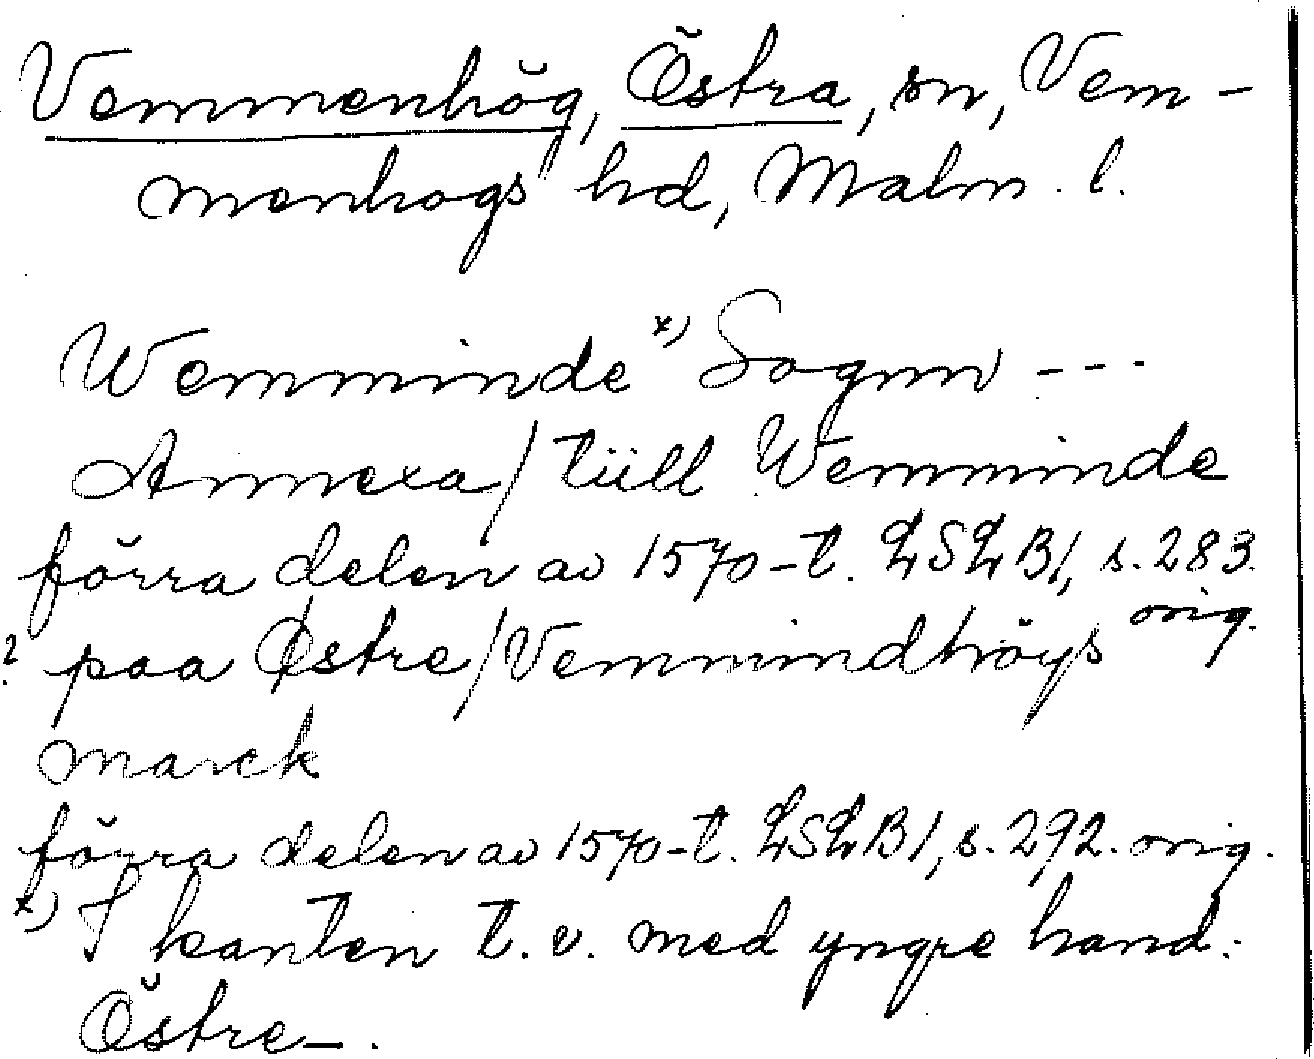 Vemmenhög, Östra, sn, Vem-
menhogs hd, Malm. l.
Wemminde x) Sognn ---
Annexa / tüll Wemminde
förra delen av 1570-t. LSLB1, s. 283.
orig.
? paa Østre / Vemmindhöys
marck
förra delen av 1570-t. LSLB1, s. 292. orig.
x) I kanten t.v. med yngre hand:
Östre-.